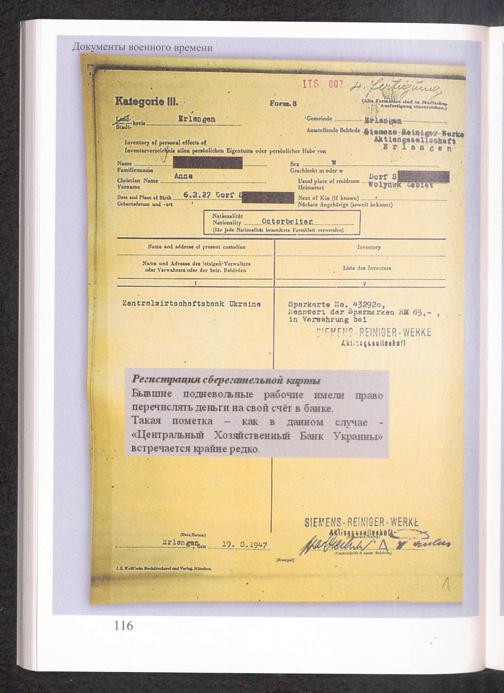 Документы военного времени
ITS 007 4. Fertigung
Kategorie III.
Form. 8
(Alle Formulare sind in 5facher Ausfertigung einzureichen.)
Land-
Stadt-kreis Erlangen
Gemeinde Erlangen
Ausstellende Behörde Siemens-Reiniger-Werke
Aktiengesellschaft
Erlangen
Inventory of personal effects of
Inventarverzeichnis allen persönlichen Eigentums oder persönlicher Habe von
Name
Familienname
Sex W
Geschlecht m oder w
Christian Name Anna
Vorname
Usual place of residence Dorf S
Heimatort Wolynsk Gebiet
Date and Place of Birth 6.2.27 Dorf S
Geburtsdatum und -ort
Next of Kin (if known)
Nächste Angehörige (soweit bekannt)
Nationalität
Nationality Ostarbeiter
(für jede Nationalität besonderes Formblatt verwenden)
Name and address of present custodian
Inventory
Name und Adresse des jetzigen Verwalters
oder Verwahrers oder der betr. Behörden
Liste des Inventars
1
2
Zentralwirtschaftsbank Ukraine
Sparkarte No. 432920,
Nennwert der Sparmarken RM 63,-,
in Verwahrung bei
SIEMENS-REINIGER-WERKE
Aktiengesellschaft
Регистрация сберегательной карты
Бывшие подневольные рабочие имели право
перечислять деньги на свой счёт в банке.
Такая пометка – как в данном случае -
«Центральный Хозяйственный Банк Украины»
встречается крайне редко.
(Date/Datum)
Erlangen, den 19. 8. 1947
SIEMENS-REINIGER-WERKE
Aktiengesellschaft
(Stempel)
J. G. Weiß'sche Buchdruckerei und Verlag, München.
1
116